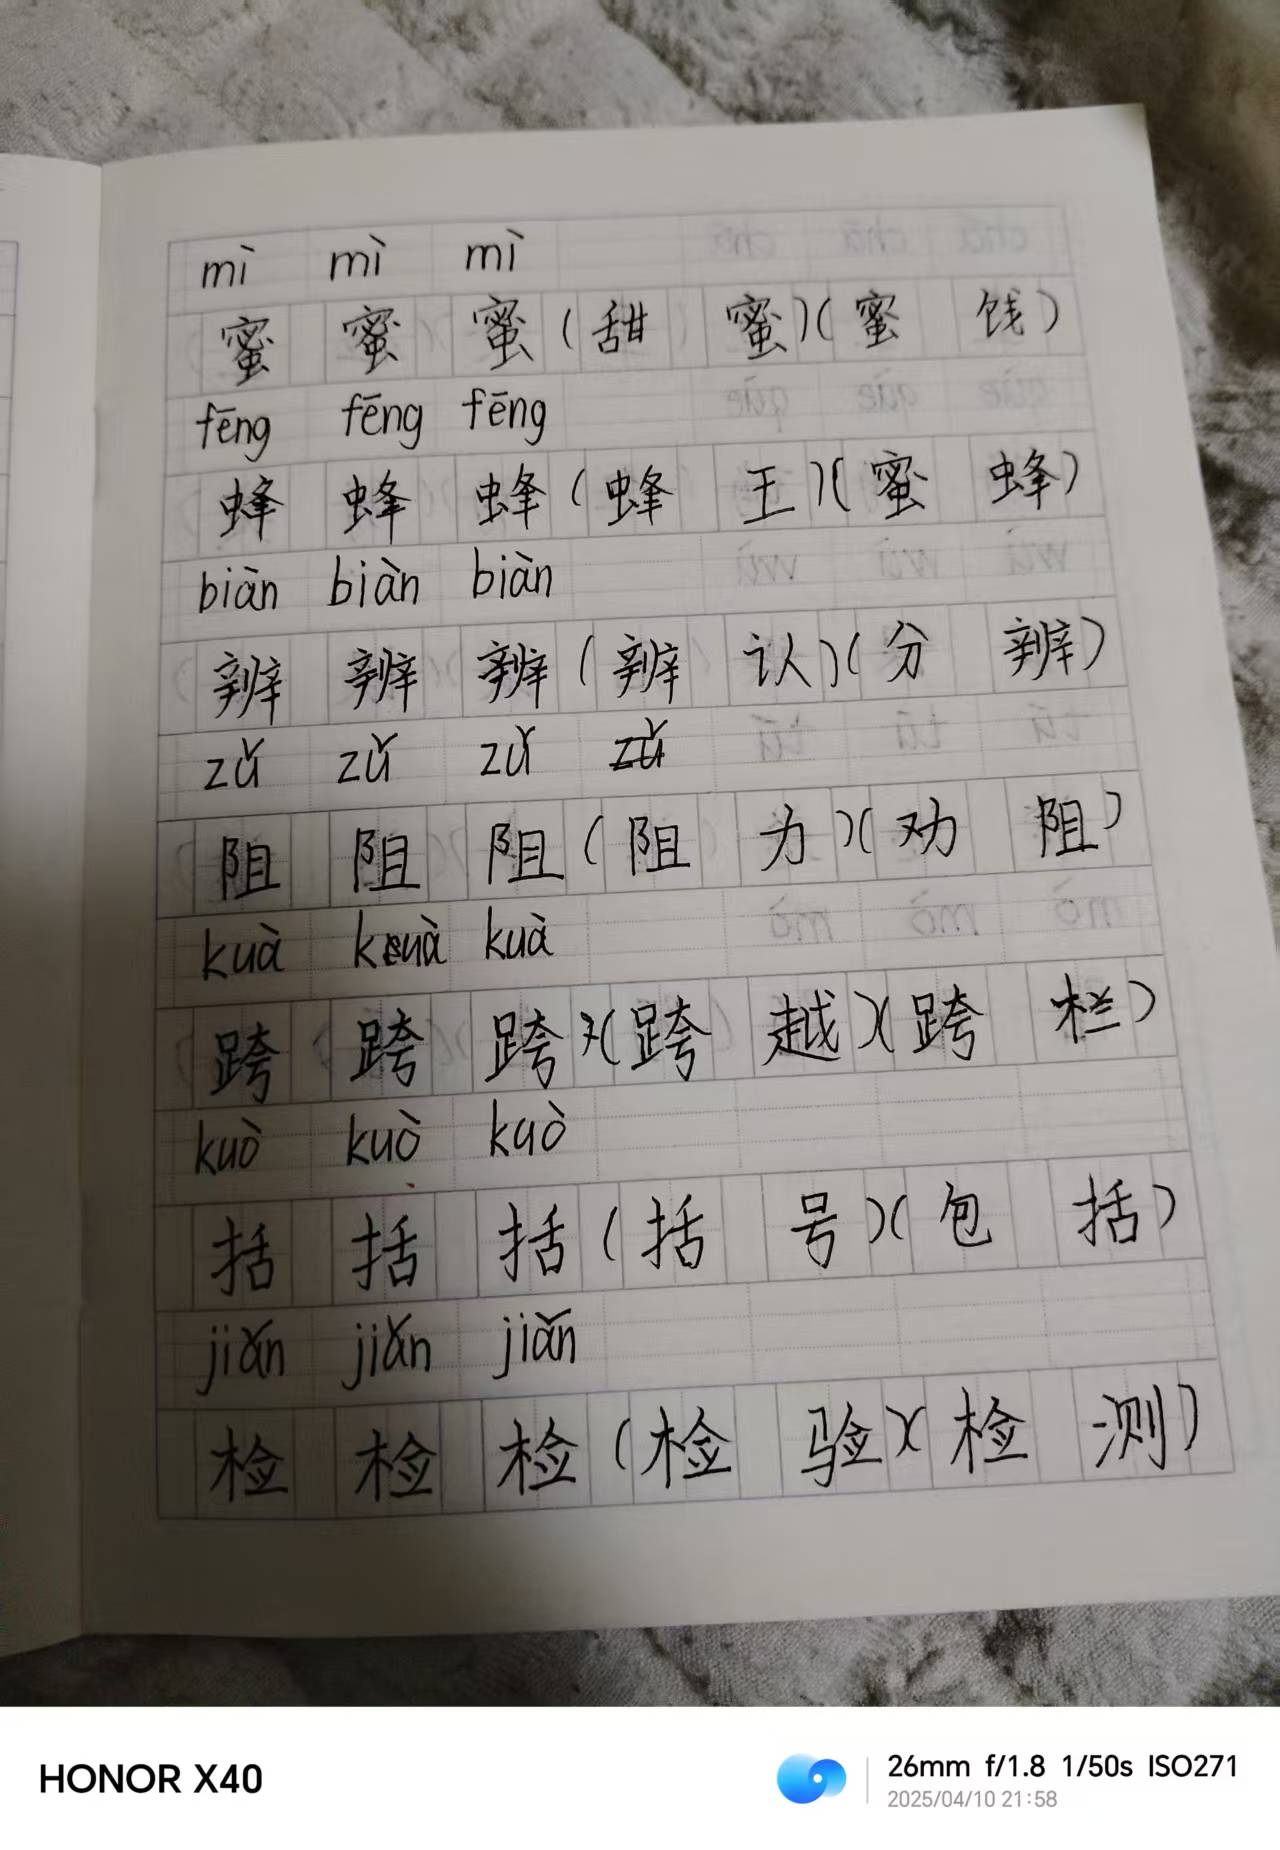 mì mì mì
蜜 蜜 蜜 (甜 蜜)(蜜 饯)
fēng fēng fēng
蜂 蜂 蜂 (蜂 王)(蜜 蜂)
biàn biàn biàn
辨 辨 辨 (辨 认)(分 辨)
zǔ zǔ zǔ zǔ
阻 阻 阻 (阻 力)(劝 阻)
kuà kuà kuà
跨 跨 跨 (跨 越)(跨 栏)
kuò kuò kuò
括 括 括 (括 号)(包 括)
jiǎn jiǎn jiǎn
检 检 检 (检 验)(检 测)
HONOR X40
26mm f/1.8 1/50s ISO271
2025/04/10 21:58